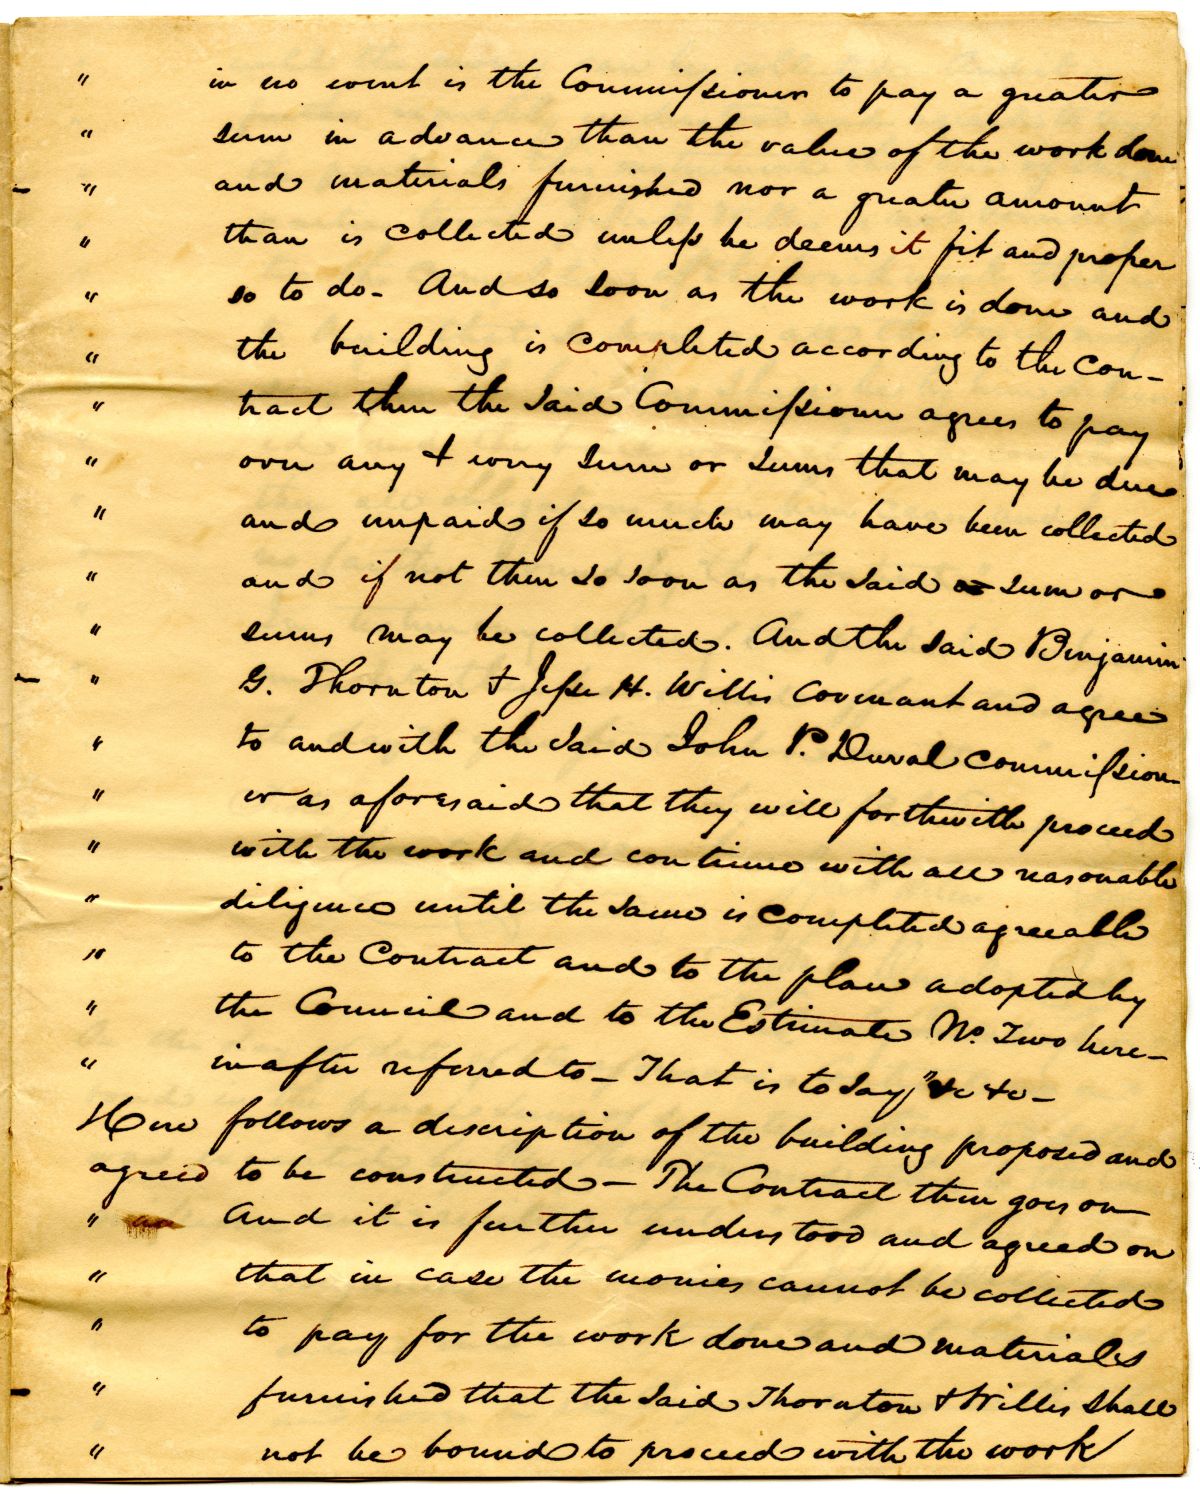 " in no event is the Commissioner to pay a greater
" sum in advance than the value of the work done
" and materials furnished nor a greater amount
" than is collected unless he deems it fit and proper
" so to do - And so soon as the work is done and
" the building is completed according to the Con-
" tract then the said Commissioner agrees to pay
" over any & every sum or sums that may be due
" and unpaid if so much may have been collected
" and if not then so soon as the said sum or
" sums may be collected. And the said Benjamin
" G. Thornton & Jesse H. Willis covenant and agree
" to and with the said John P. Duval Commission-
" er as aforesaid that they will forthwith proceed
" with the work and continue with all reasonable
" diligence until the same is completed agreeable
" to the Contract and to the plan adopted by
" the Council and to the Estimate No. Two here-
" in after referred to - That is to say" &c &c -
Here follows a description of the building proposed and
agreed to be constructed - The Contract then goes on
" And it is further understood and agreed on
" that in case the monies cannot be collected
" to pay for the work done and materials
" furnished that the said Thornton & Willis shall
" not be bound to proceed with the work